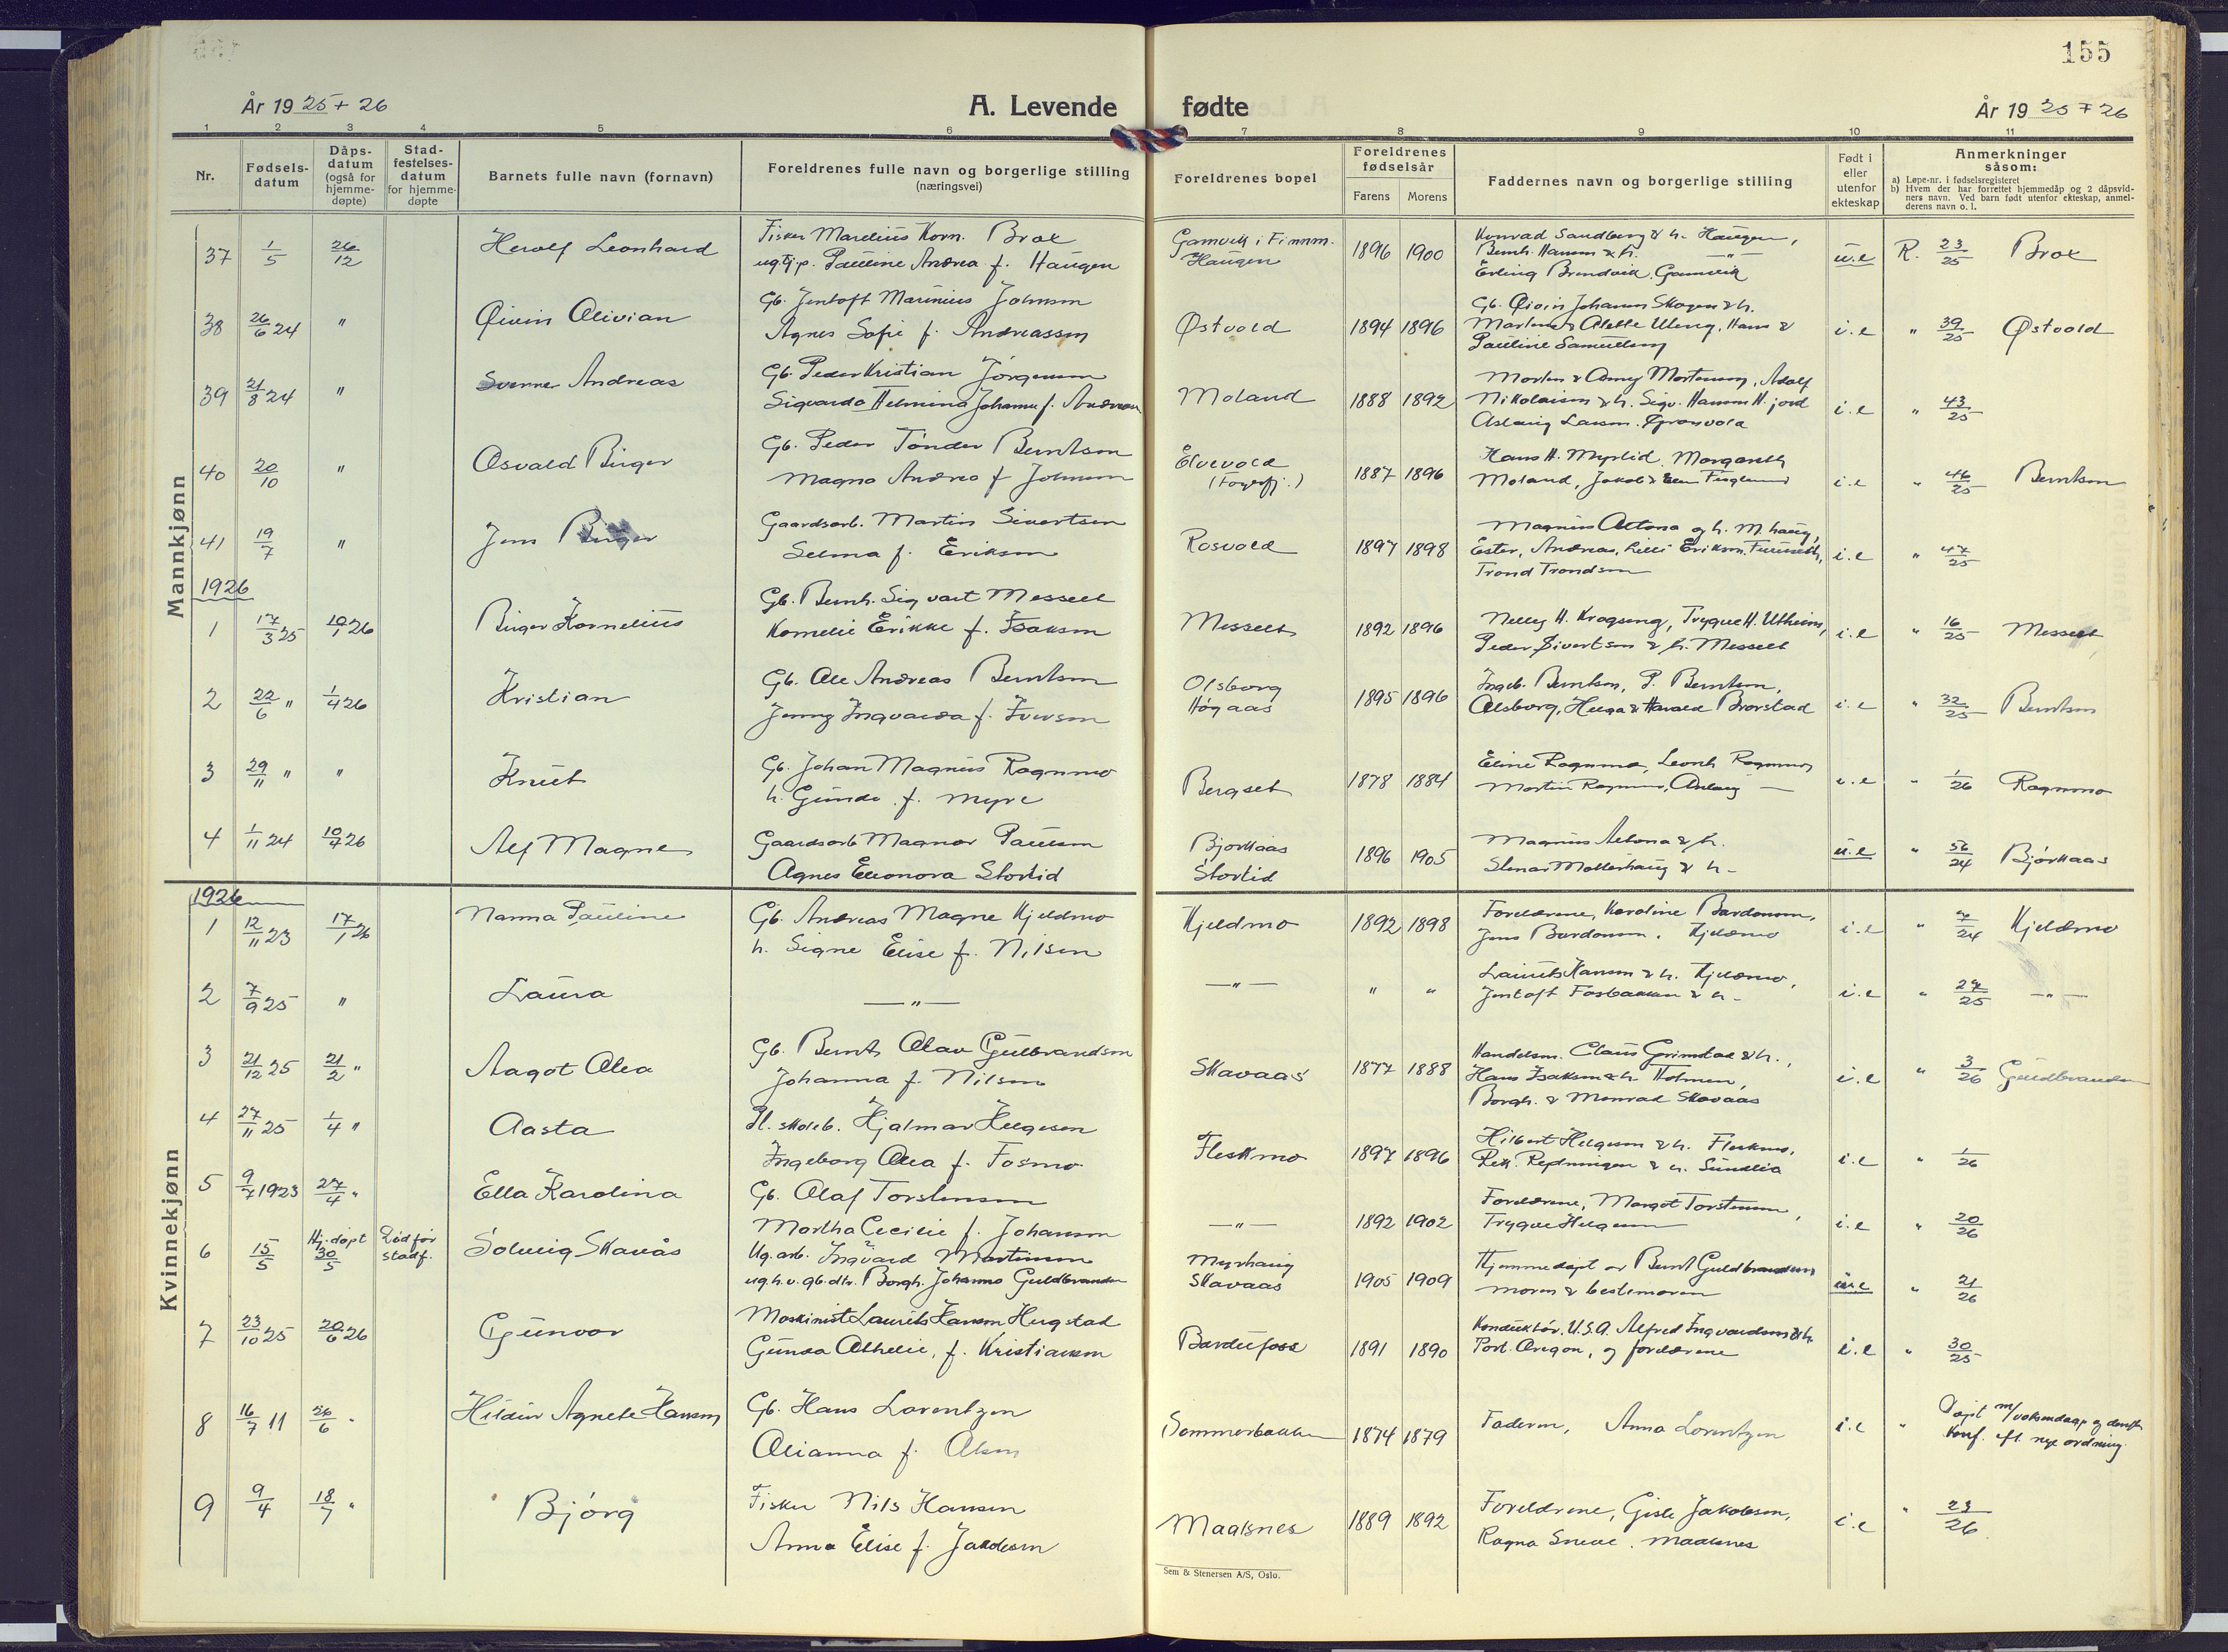 155
År 1925 + 26
A. Levende fødte
År 1925 + 26
1 2 3 4 5 6 7 8 9 10 11
Nr.
Fødsels-
datum
Dåps-
datum
(også for
hjemme-
døpte)
Stad-
festelses-
datum
for hjemme-
døpte
Barnets fulle navn (fornavn)
Foreldrenes fulle navn og borgerlige stilling
(næringsvei)
Foreldrenes bopel
Foreldrenes
fødselsår
Farens Morens
Faddernes navn og borgerlige stilling
Født i
eller
utenfor
ekteskap
Anmerkninger
såsom:
a) Løpe-nr. i fødselsregisteret
b) Hvem der har forrettet hjemmedåp og 2 dåpsvid-
ners navn. Ved barn født utenfor ekteskap, anmel-
derens navn o. l.
Mannkjønn
37 1/5 26/12 Herolf Leonhard
Fisker Marelius Korn. Brox
ug tj.p. Pauline Andrea f. Haugen
Gamvik i Finnm.
Haugen
1896 1900
Konrad Sandberg & h. Haugen,
Bernh. Hansen & h. —"—
Erling Brendvik, Gamvik
u.e R. 23/25 Brox
38 26/6 24 " Øivin Olivian
Gb. Jentoft Marinius Johnsen
Agnes Sofie f. Andreassen
Østvold
1894 1896
Gb. Øivin Johansen Skogen & h.
Martene & Alette Uleng, Hans &
Pauline Samuelsen
i.e " 39/25 Østvold
39 21/8 24 " Sverre Andreas
Gb. Peder Kristian Jørgensen
Sigvarda Helmina Johanne f. Andreassen
Moland
1888 1892
Morten & Amy Mortensen, Adolf
Nikolaisen & h. Sigv. Hansen H. jord
Aslaug Larsen. Grønvold
i.e " 43/25
40 20/10 " Osvald Birger
Gb. Peder Tønder Berntsen
Magna Andrea f. Johnsen
Elvevold
(Fogerfj.)
1887 1896
Hans H. Myrlid, Margareth
Moland, Jakob &
i.e " 46/25 Berntsen
41 19/7 " Jens Birger
Gaardsarb. Martin Sivertsen
Selma f. Eriksen
Rosvold
1897 1898
Magnus Altona og h. M.haug,
Ester, Andreas, Lilli Eriksen, Furuseth,
Trond Trondsen
i.e " 47/25
1926
1 17/3 25 10/1 26 Birger Kornelius
Gb. Bernh. Sigvart Messelt
Kornelie Erikke f. Isaksen
Messelt
1892 1896
Nelly H. Krogseng, Trygve H. Utheim,
Peder Sivertsen & h. Messelt
i.e " 16/25 Messelt
2 22/6 " 1/4 26 Kristian
Gb. Ole Andreas Berntsen
Jenny Ingvarda f. Iversen
Olsborg
Høgaas
1895 1896
Ingeb. Berntsen, P. Berntsen,
Olsborg, Helga & Harald Brorstad
i.e " 32/25 Berntsen
3 29/11 " " Knut
Gb. Johan Magnus Rognmo
h. Gunda f. Myre
Bergset
1878 1884
Eline Rognmo, Leonh Rognmo,
Martin Rognmo, Aslaug —
i.e " 1/26 Rognmo
4 1/11 24 10/4 26 Alf Magne
Gaardsarb Magnar Paulsen
Agnes Eleonora Storlid
Bjørkaas
Storlid
1896 1905
Magnus Altona & h.
Stenar Mollerhaug & h —
u.e " 56/24 Bjørkaas
Kvinnekjønn
1926
1 12/11 23 17/1 26 Nanna Pauline
Gb. Andreas Magne Kjeldmo
h. Signe Elise f. Nilsen
Kjeldmo
1892 1898
Foreldrene, Karoline Bardonsen,
Jens Bardonsen, Kjeldmo
i.e " 4/24 Kjeldmo
2 7/9 25 " Laura
—"—
—"—
" "
Laurits Hansen & h. Kjeldmo,
Jentoft Fosbakken & h —
i.e " 24/25 —"—
3 21/12 25 21/2 " Aagot Alea
Gb. Bernt Olav Gulbrandsen
Johanna f. Nilsen
Skavaas
1877 1888
Handelsm. Claus Grimstad & h.,
Hans Isaksen & h. Holmen,
Borgh. & Monrad Skavaas
i.e " 3/26 Guldbrandsen
4 27/11 25 1/4 " Aasta
St. skoleb. Hjalmar Helgesen
Ingeborg Olea f. Fosmo
Fleskmo
1897 1896
Hilbert Helgesen & h. Fleskmo,
Rek. Redningen & h. Sundlia
i.e " 1/26
5 9/7 1923 27/4 " Ella Karolina
Gb. Olaf Torstensen
Martha Cecilie f. Johansen
—"—
1892 1902
Foreldrene, Margot Torstensen,
Trygve Helgesen
i.e " 20/26
6 15/5 Hj.døpt 30/5 Død før stadf. Solveig Skavås
Ug. arb. Ingvard Martinsen
ug. h.v. gb.dtr. Borgh. Johanna Guldbrandsen
Myrhaug
Skavaas
1905 1909
Hjemmedøpt av Bernt Guldbrandsen
moren & bestemoren
u.e " 21/26
7 23/10 25 20/6 26 Gunvor
Maskinist Laurits Hansen Hergstad
Gunda Athelie, f. Kristiansen
Bardufoss
1891 1890
Konduktør, U.S.A. Alfred Ingvardsen & h.
Port. Oregon, og foreldrene
i.e " 30/25
8 16/7 11 26/6 " Hildur Agnete Hansen
Gb. Hans Lorentzen
Olianna f. Olsen
Sommerbakken
1874 1879
Faderen, Anna Lorentzen
i.e " Døpt m/voksendaap og derefter
konf. eft. nye ordning.
9 9/4 18/7 " Bjórg
Fisker Nils Hansen
Anna Elise f. Jakobsen
Maalsnes
1889 1892
Foreldrene, Gisle Jakobsen,
Ragna Sneve, Maalsnes
i.e " 23/26
Sem & Stenersen A/S, Oslo.